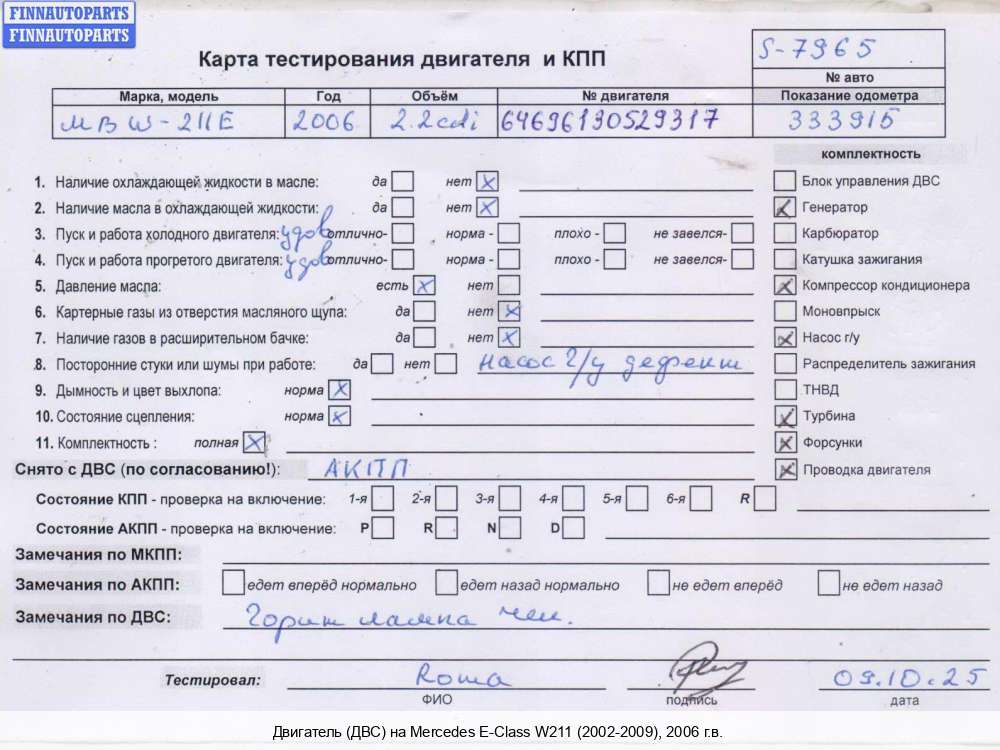 FINNAUTOPARTS
FINNAUTOPARTS
Карта тестирования двигателя и КПП
S-7965
№ авто
Марка, модель Год Объём № двигателя Показание одометра
MB W-211E 2006 2.2cdi 64696130529317 333915
комплектность
1. Наличие охлаждающей жидкости в масле: да нет X Блок управления ДВС
2. Наличие масла в охлаждающей жидкости: да нет X Генератор
3. Пуск и работа холодного двигателя: удов отлично- норма - плохо - не завелся- Карбюратор
4. Пуск и работа прогретого двигателя: удов отлично- норма - плохо - не завелся- Катушка зажигания
5. Давление масла: есть X нет Компрессор кондиционера
6. Картерные газы из отверстия масляного щупа: да нет X Моновпрыск
7. Наличие газов в расширительном бачке: да нет X Насос г/у
8. Посторонние стуки или шумы при работе: да нет насос г/у дефект Распределитель зажигания
9. Дымность и цвет выхлопа: норма X ТНВД
10. Состояние сцепления: норма X Турбина
11. Комплектность : полная X Форсунки
Снято с ДВС (по согласованию!): АКПП Проводка двигателя
Состояние КПП - проверка на включение: 1-я 2-я 3-я 4-я 5-я 6-я R
Состояние АКПП - проверка на включение: P R N D
Замечания по МКПП:
Замечания по АКПП: едет вперёд нормально едет назад нормально не едет вперёд не едет назад
Замечания по ДВС: Горит лампа чек.
Тестировал: Roma 09.10.25
ФИО подпись дата
Двигатель (ДВС) на Mercedes E-Class W211 (2002-2009), 2006 г.в.